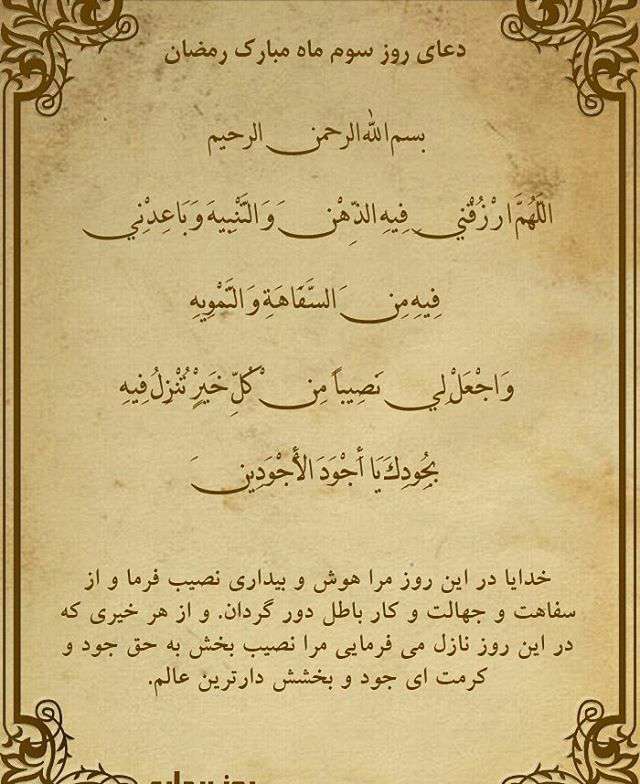 دعای روز سوم ماه مبارک رمضان
بسم الله الرحمن الرحیم
اللَّهُمَّ ارْزُقْنِي فِيهِ الذِّهْنَ وَ التَّنْبِيهَ وَ بَاعِدْنِي
فِيهِ مِنَ السَّفَاهَةِ وَ التَّمْوِيهِ
وَ اجْعَلْ لِي نَصِيباً مِنْ كُلِّ خَيْرٍ تُنْزِلُ فِيهِ
بِجُودِكَ يَا أَجْوَدَ الْأَجْوَدِينَ
خدایا در این روز مرا هوش و بیداری نصیب فرما و از
سفاهت و جهالت و کار باطل دور گردان. و از هر خیری که
در این روز نازل می فرمایی مرا نصیب بخش به حق جود و
کرمت ای جود و بخشش دارترین عالم.